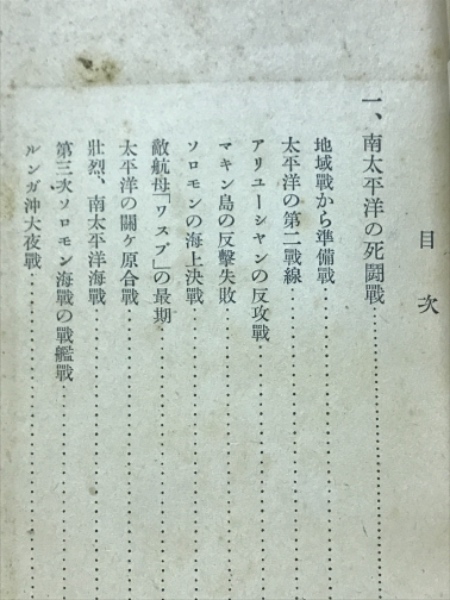 目次
一、南太平洋の死闘戰
地域戰から準備戰
太平洋の第二戰線
アリユーシヤンの反攻戰
マキン島の反擊失敗
ソロモンの海上決戰
敵航母「ワスプ」の最期
太平洋の關ケ原合戰
壯烈、南太平洋海戰
第三次ソロモン海戰の戰艦戰
ルンガ沖大夜戰